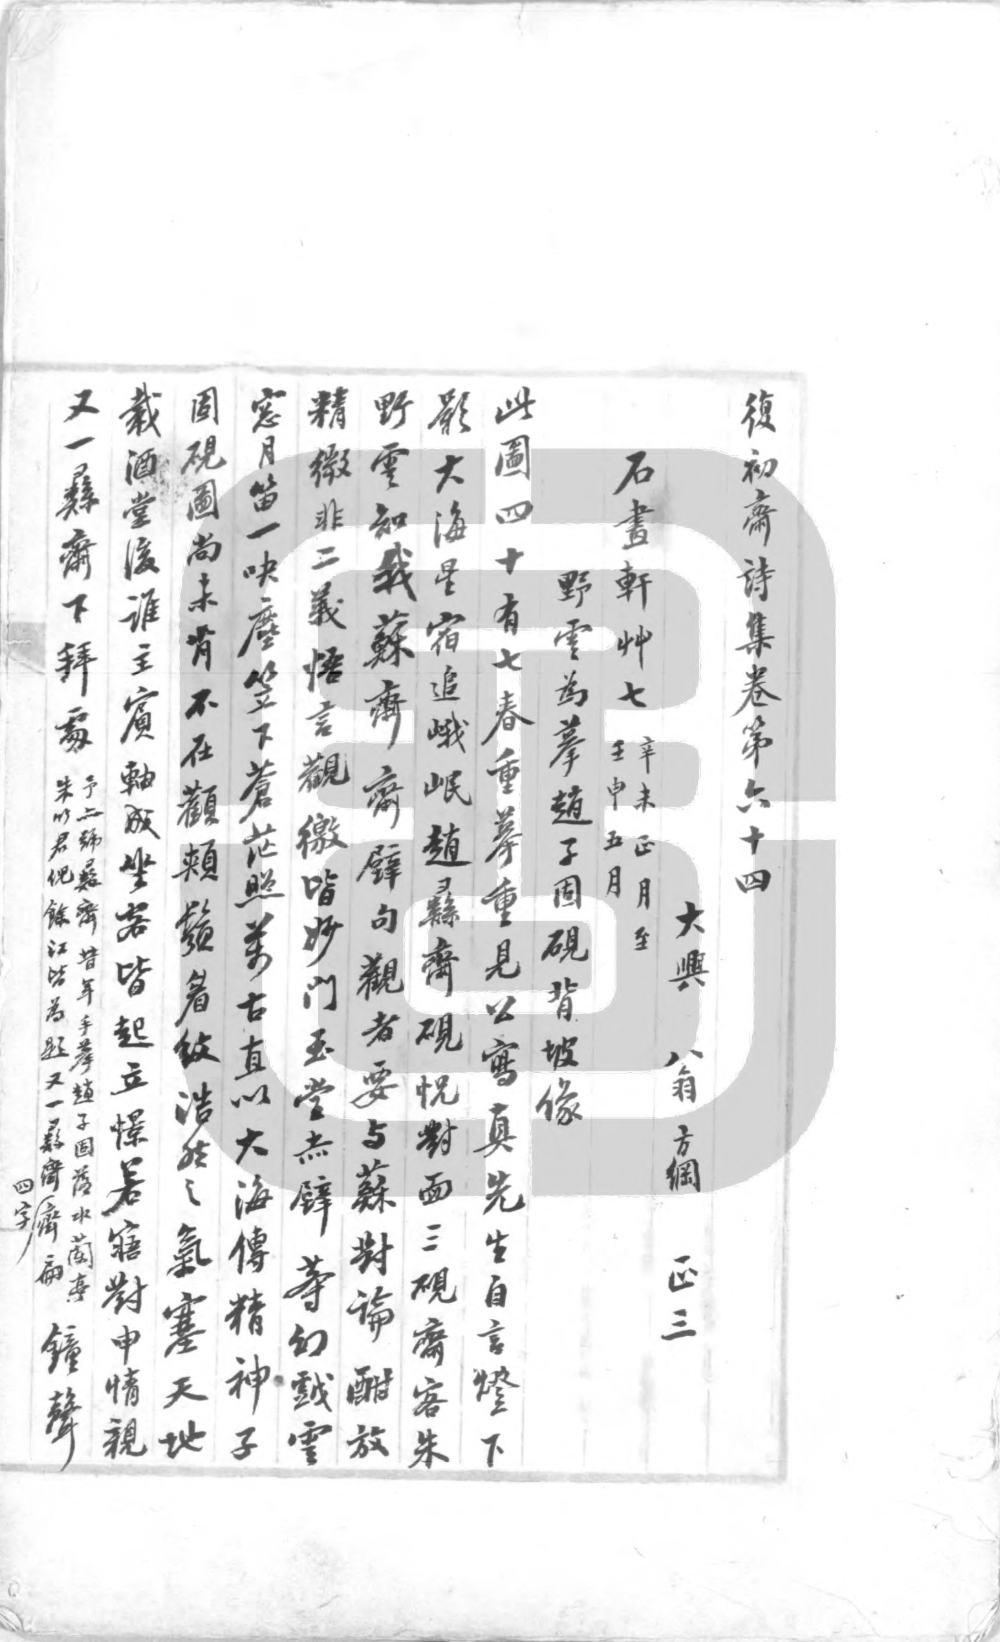 復初齋詩集卷第六十四
大興 翁方綱 正三
石畫軒艸七 辛未正月至
壬申五月
野雲為摹趙子固硯背坡像
此圖四十有七春重摹重見公寫真先生自言燈下
影大海星宿追峨岷趙彝齋硯怳對面三硯齋客朱
野雲知我蘇齋齋壁句觀者要與蘇對論酣放
精微非二義悟言觀徼皆妙門玉堂赤壁等幻戲雲
窓月笛一吷塵笠下蒼茫照萬古直以大海傳精神子
固硯圖尚未肖不在顴頰鬚眉紋浩然之氣塞天地
載酒堂後誰主賓軸成坐客皆起立憬若寤對申情親
又一彝齋下拜處
予亦號彝齋昔年手摹趙子固落水蘭亭
朱竹君倪餘江皆為題又一彝齋齋扁
四字
鐘聲